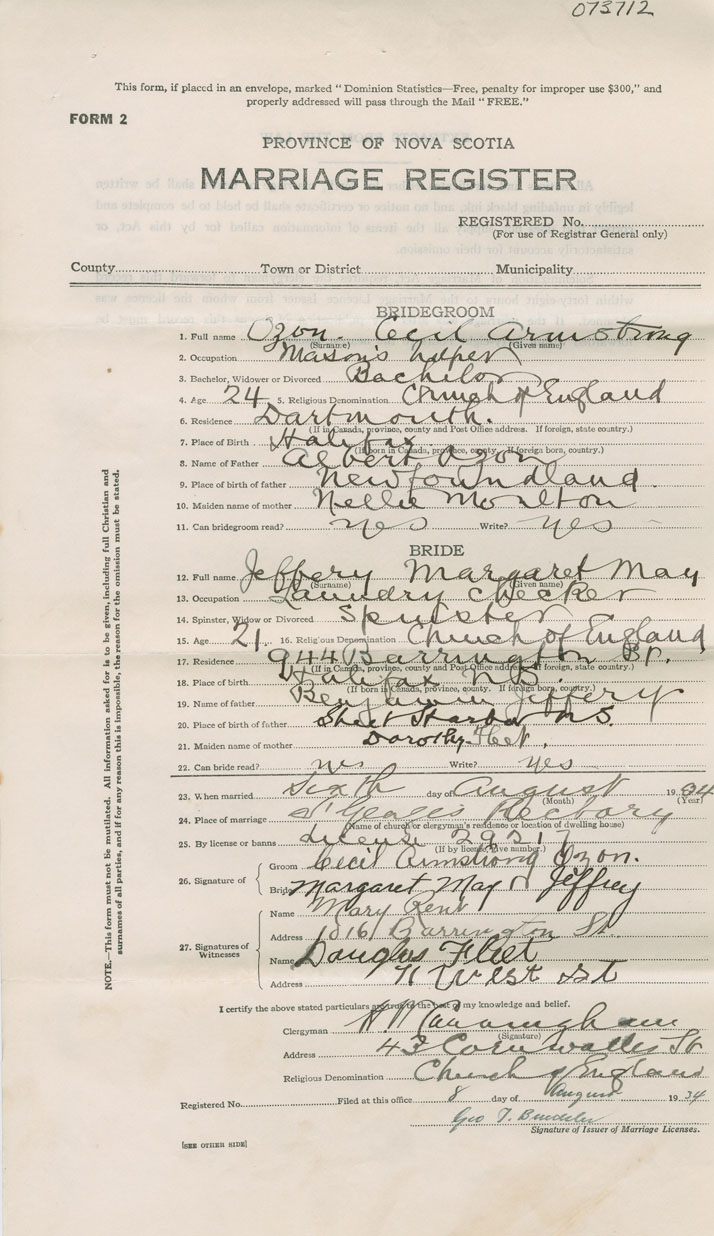 073712
This form, if placed in an envelope, marked "Dominion Statistics—Free, penalty for improper use $300," and
properly addressed will pass through the Mail "FREE."
FORM 2
PROVINCE OF NOVA SCOTIA
MARRIAGE REGISTER
REGISTERED No.
(For use of Registrar General only)
County Town or District Municipality
BRIDEGROOM
1. Full name Ozon. Cecil Armstrong
(Surname) (Given name)
2. Occupation Mason's helper
3. Bachelor, Widower or Divorced Bachelor
4. Age 24 5. Religious Denomination Church of England
6. Residence Dartmouth.
(If in Canada, province, county and Post Office address. If foreign, state country.)
7. Place of Birth Halifax
(If born in Canada, province, county. If foreign born, country.)
8. Name of Father Albert Ozon
9. Place of birth of father Newfoundland
10. Maiden name of mother Nellie Moulton
11. Can bridegroom read? yes Write? yes
BRIDE
12. Full name Jeffery Margaret May
(Surname) (Given name)
13. Occupation Laundry Checker
14. Spinster, Widow or Divorced Spinster
15. Age 21. 16. Religious Denomination Church of England
17. Residence 944 Barrington St.
(If in Canada, province, county and Post Office address. If foreign, state country.)
18. Place of birth Halifax N.S.
(If born in Canada, province, county. If foreign born, country.)
19. Name of father Benjamin Jeffery
20. Place of birth of father Sheet Harbor N.S.
21. Maiden name of mother Dorothy Fleet.
22. Can bride read? yes Write? yes
23. When married sixth day of August 1934
(Month) (Year)
24. Place of marriage St Georges Rectory
(Name of church or clergyman's residence or location of dwelling house)
25. By license or banns License
(If by license, give number.)
26. Signature of Groom Cecil Armstrong Ozon.
Bride Margaret May Jeffrey
27. Signatures of Witnesses
Name Mary Kent
Address Barrington St.
Name Douglas Fleet
Address 71 West St
I certify the above stated particulars are true to the best of my knowledge and belief.
Clergyman
(Signature)
Address 43 Cornwallis St
Religious Denomination Church of England
Registered No. Filed at this office 8 day of August 1934
Geo T.
Signature of Issuer of Marriage Licenses.
[SEE OTHER SIDE]
NOTE.—This form must not be mutilated. All information asked for is to be given, including full Christian and
surnames of all parties, and if for any reason this is impossible, the reason for the omission must be stated.